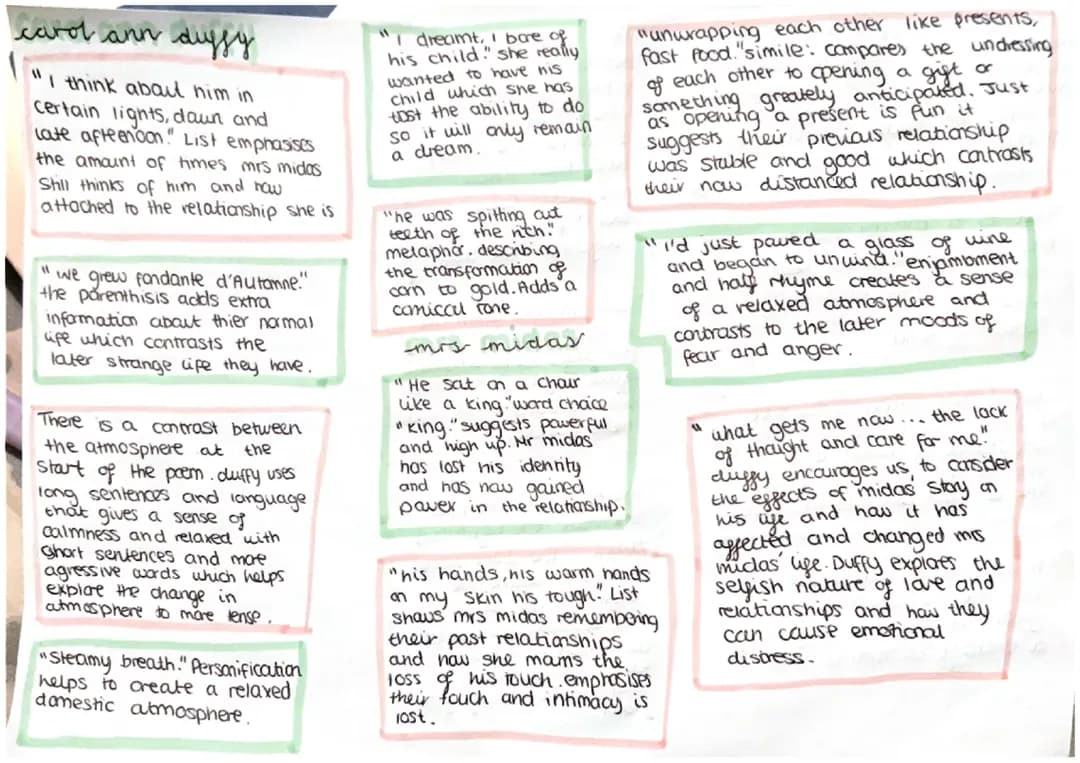 carol ann duffy
"I think about him in
certain lights, dawn and
late afternoon." List emphasises
the amount of times mrs midas
Still thinks of him and how
attached to the relationship she is
"we grew fondante d'Automne."
the parenthisis adds extra
information about thier normal
life which contrasts the
later strange life they have.
There is a contrast between
the atmosphere at the
start of the poem. duffy uses
long sentences and language
that gives a sense of
calmness and relaxed with
short sentences and more
agressive words which helps
explore the change in
atmosphere to more tense.
"Steamy breath." Personification
helps to create a relaxed
domestic atmosphere.
"I dreamt, I bore of
his child." she really
wanted to have his
child which she has
lost the ability to do
so it will only remain
a dream.
"he was spitting out
teeth of the rich."
metaphor. describing
the transformation of
corn to gold. Adds a
comical tone.
mrs midas
"He sat on a chair
like a king." word choice
"king." suggests powerful
and high up. Mr midas
has lost his identity
and has now gained
power in the relationship.
"his hands, his warm hands
on my skin his tough." List
shows mrs midas remembering
their past relationships
and how she morns the
loss of his touch. emphasises
their touch and intimacy is
lost.
"unwrapping each other like presents,
fast food." simile: compares the undressing
of each other to opening a gift or
something greately anticipated. Just
as opening a present is fun it
suggests their previous relationship
was stable and good which contrasts
their now distanced relationship.
"I'd just poured a glass of wine
and began to unwind." enjambment
and half rhyme creates a sense
of a relaxed atmosphere and
contrasts to the later moods of
fear and anger.
"what gets me now... the lack
of thought and care for me."
duffy encourages us to consider
the effects of midas' story on
his life and how it has
affected and changed mrs
midas' life. Duffy explores the
selfish nature of love and
relationships and how they
can cause emotional
distress.